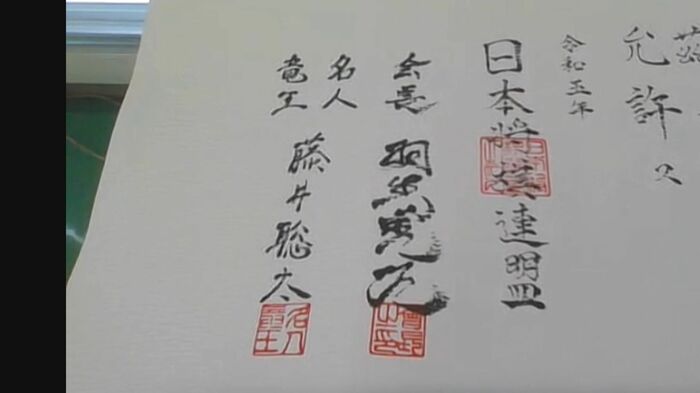 允許ス
令和五年
日本将棋連盟
会長 羽生善治
會長之印
名人
竜王 藤井聡太